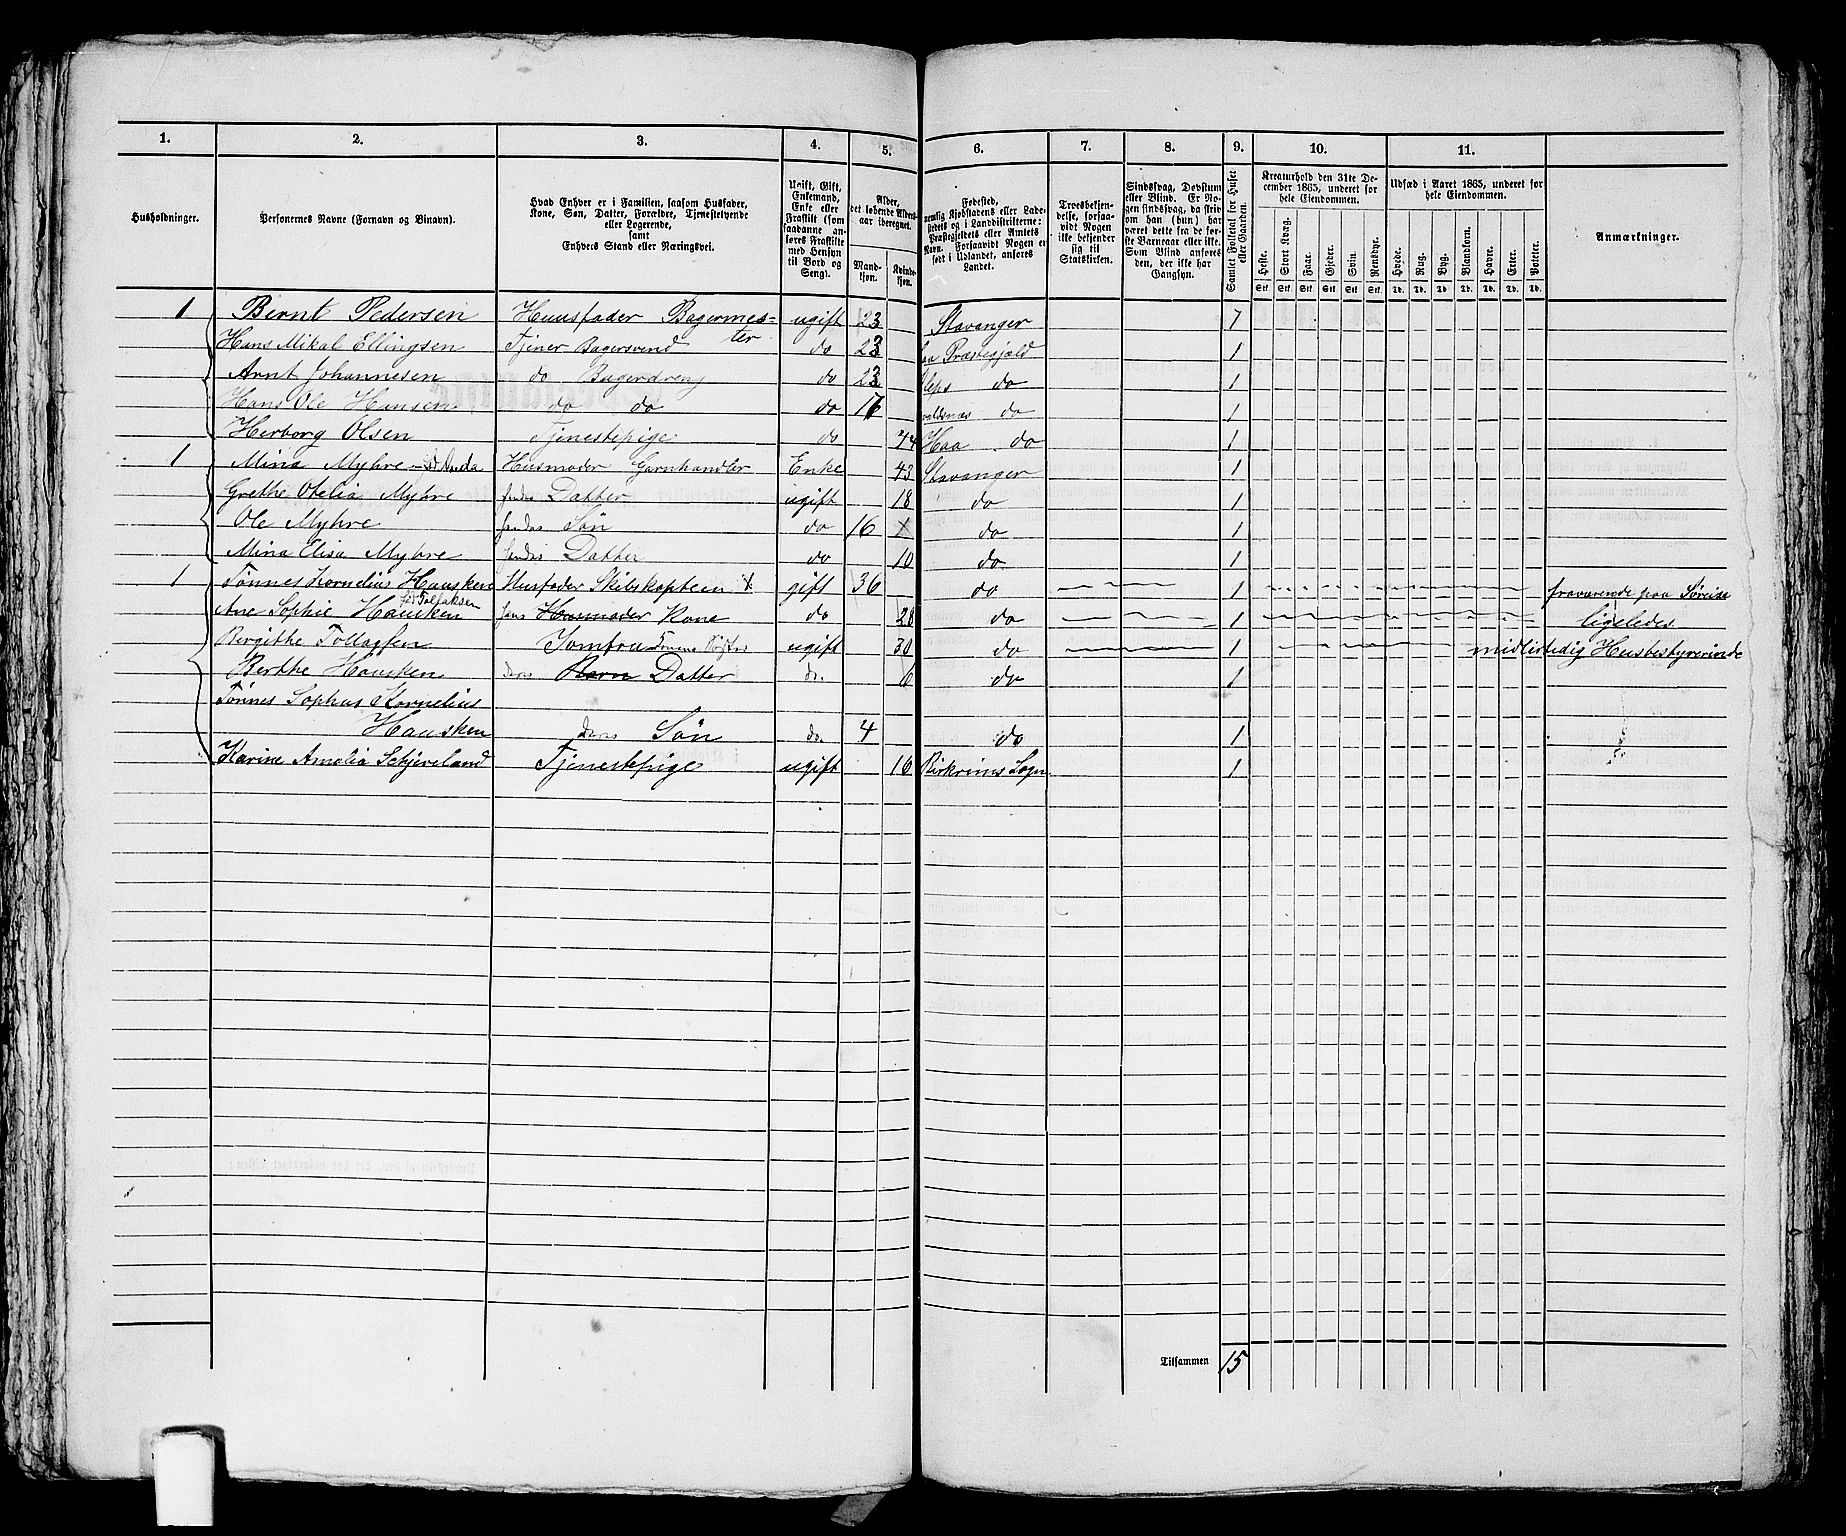 1. 2. 3. 4. 5. 6. 7. 8. 9. 10. 11.
Husholdninger.
Personernes Navne (Fornavn og Binavn).
Hvad Enhver er i Familien, saasom Husfader,
Kone, Søn, Datter, Forældre, Tjenestetyende
eller Logerende,
samt
Enhvers Stand eller Næringsvei.
Ugift, Gift,
Enkemand,
Enke eller
Fraskilt (som
saadanne an-
føres Fraskilte
med Hensyn
til Bord og
Seng).
Alder,
det løbende Alders-
aar iberegnet.
Mand-
kjøn.
Kvinde-
kjøn.
Fødested,
nemlig Kjøbstadens eller Lade-
stedets og i Landdistrikterne:
Præstegjeldets eller Amtets
Navn. Forsaavidt Nogen er
født i Udlandet, anføres
Landet.
Troesbekjen-
delse, forsaa-
vidt Nogen
ikke bekjender
sig til
Statskirken.
Sindssvag, Døvstum
eller Blind. Er No-
gen sindssvag, da skriv
om han (hun) har
været dette fra de før-
ste Barneaar eller ikke.
Som Blind ansøres
den, der ikke har
Gangsyn.
Samlet Folketal for Huset
eller Gaarden.
Kreaturhold den 31te De-
cember 1865, underet for
hele Eiendommen.
Heste. Stort Kvæg. Faar. Gjeder. Svin. Rensdyr.
Stk. Stk. Stk. Stk. Stk. Stk.
Udsæd i Aaret 1865, underet for
hele Eiendommen.
Hvede. Rug. Byg. Blandkorn. Havre. Erter. Poteter.
Td. Td. Td. Td. Td. Td. Td.
Anmærkninger.
1 Bernt Pedersen Huusfader Bagermes- ugift 23 Stavanger 7
ter
Hans Mikal Ellingsen Tjener Bagersvend do 23 Haa Præstegjæld 1
Arnt Johannesen do Bagerdreng do 23 Kleps do 1
Hans Ole Hansen do do do 17 do 1
Herborg Olsen Tjenestepige do 44 Haa do 1
1 Mina Myhre Husmoder Garnhandler Enke 43 Stavanger 1
Grethe Otelia Myhre hendes Datter ugift 18 do 1
Ole Myhre hendes Søn do 16 do 1
Mina Elisa Myhre hendes Datter do 10 do 1
1 Tønnes Kornelius Hausken Husfader Skibskaptein gift 36 do 1 fraværende paa Søreise
Ane Sophie Hausken hans Husmoder Kone do 28 do 1 ligeledes
Birgithe Tollagsen Jomfru ugift 30 do 1 midlertidig Husbestyrerinde
Berthe Hausken deres Barn Datter do. 6 do 1
Tønnes Sophus Kornelius
Hausken deres Søn do. 4 do 1
Karine Amalia Schjeveland Tjenestepige ugift 16 Birkreims Sogn 1
Tilsammen 15